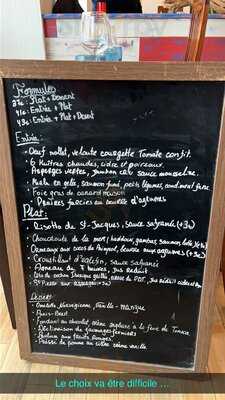 Formules
37€ : Plat + Dessert
41€ : Entrée + Plat
49€ : Entrée + Plat + Dessert
Entrée :
- Oeuf mollet, velouté courgette Tomate confit.
- 6 Huîtres chaudes, cidre et poireaux.
- Asperges vertes, jambon cru sauce mousseline.
- en gelée, saumon fumé, petits légumes, condiment
- Foie gras de canard maison
- Praires farcies au beurre d'agrumes
Plat :
- Risotto de St-Jacques, sauce safranée (+3€)
- Choucroute de la mer, haddock, gambas, saumon
- Ormeaux aux beurre aux agrumes (+5€)
- Croustillant d'églefin, sauce safranée
- Agneau de 7 heures, jus réduit
- de cochon
Dessert
- Omelette Norvégienne, Vanille - mangue
- Paris-Brest
- Fondant au chocolat, crème anglaise à la fève de Tonka
- Déclinaison de fromages fermiers
- Pavlova aux fruits rouges
- crème vanille
Le choix va être difficile ...